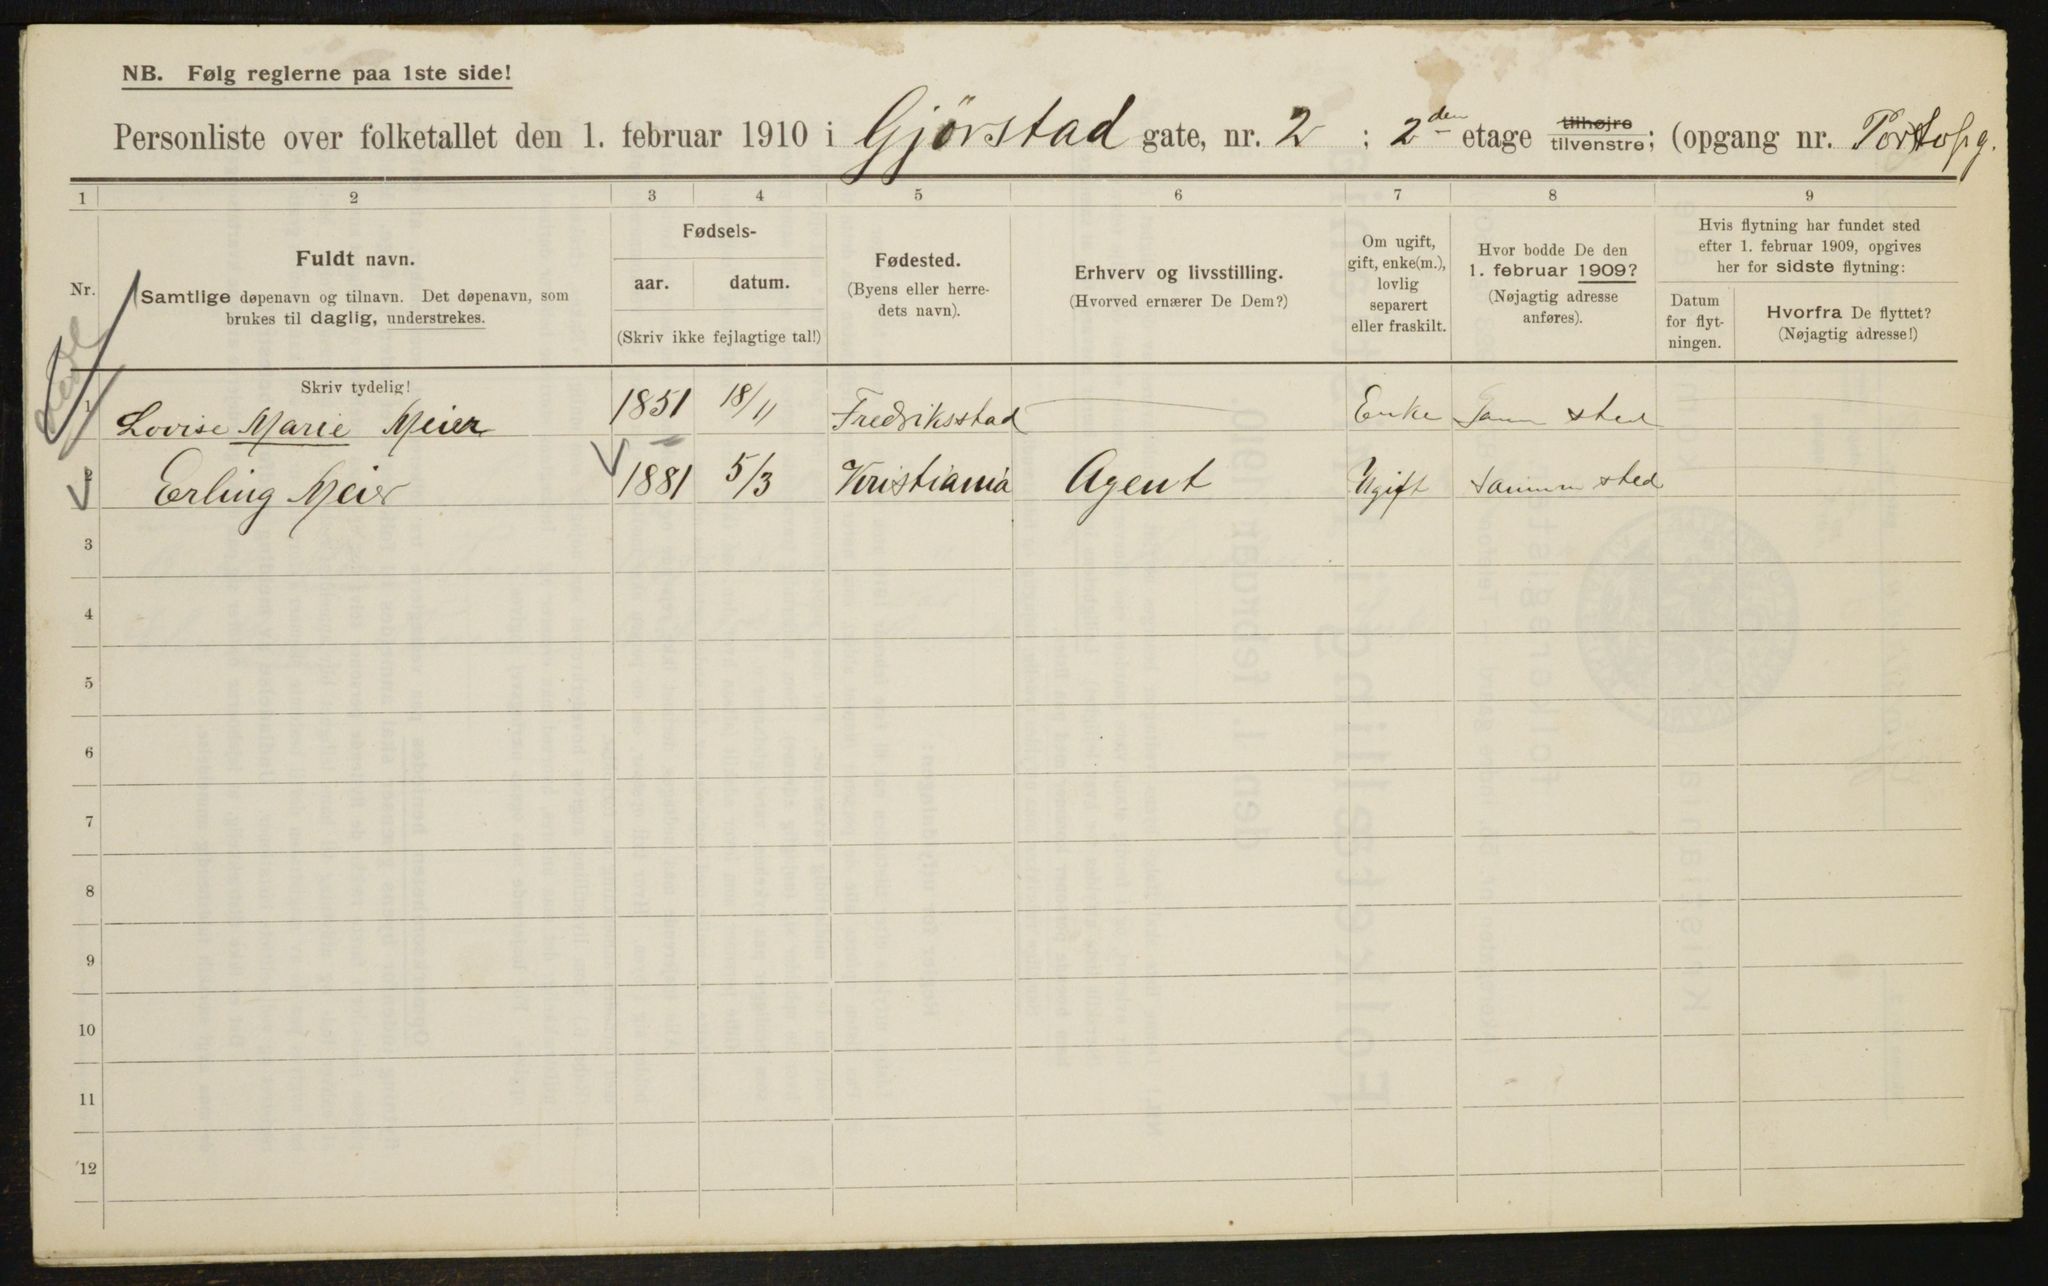 NB. Følg reglerne paa 1ste side!
Personliste over folketallet den 1. februar 1910 i Gjörstad gate, nr. 2 ; 2den etage tilhøjre tilvenstre; (opgang nr.
1 2 3 4 5 6 7 8 9
Nr.
Fuldt navn.
Samtlige døpenavn og tilnavn. Det døpenavn, som
brukes til daglig, understrekes.
Fødsels-
aar. datum.
(Skriv ikke fejlagtige tal!)
Fødested.
(Byens eller herre-
dets navn).
Erhverv og livsstilling.
(Hvorved ernærer De Dem?)
Om ugift,
gift, enke(m.),
lovlig
separert
eller fraskilt.
Hvor bodde De den
1. februar 1909?
(Nøjagtig adresse
anføres).
Hvis flytning har fundet sted
efter 1. februar 1909, opgives
her for sidste flytning:
Datum
for flyt-
ningen.
Hvorfra De flyttet?
(Nøjagtig adresse!)
Skriv tydelig!
1 Lovise Marie Meier 1851 18/11 Fredriksstad Enke Sam sted
2 Erling Meier 1881 5/3 Kristiania Agent Ugift samm sted
3
4
5
6
7
8
9
10
11
12